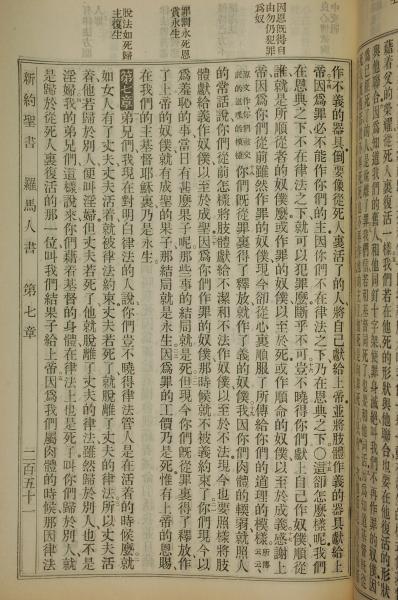 藉着父的榮耀從死人裏復活一樣我們若在他死的形狀與他聯合也要在他復活的形狀
與他聯合因爲知道我們的舊人和他同釘十字架使罪身滅絕叫我們不再作罪的奴僕因
作不義的器具倒要像從死人裏復活了的人將自己獻給上帝並將肢體作義的器具獻給上
帝因爲罪必不能作你們的主因你們不在律法之下乃在恩典之下〇這卻怎麼樣呢我們
在恩典之下不在律法之下就可以犯罪麼斷乎不可豈不曉得你們獻上自己作奴僕順從
誰就是所順從者的奴僕麼或作罪的奴僕以至於死或作順命的奴僕以至於成義感謝上
帝因爲你們從前雖然作罪的奴僕現今卻從心裏順服了所傳給你們的道理的模樣
你們旣從罪裏得了釋放就作了義的奴僕我因你們肉體的輭弱就照人
的常話說你們從前怎樣將肢體獻給不潔和不法作奴僕以至於不法現今也要照樣將肢
體獻給義作奴僕以至於成聖因爲你們作罪的奴僕那時候就不被義約束了你們現今以
爲羞恥的事當日有甚麼果子呢那些事的結局就是死但現今你們旣從罪裏得了釋放作
了上帝的奴僕就有成聖的果子那結局就是永生因爲罪的工價乃是死惟有上帝的恩賜
在我們的主基督耶穌裏乃是永生
第七章弟兄們我現在對明白律法的人說你們豈不曉得律法管人是在活着的時候麼就
如女人有了丈夫丈夫活着就被律法約束丈夫若死了就脫離了丈夫的律法所以丈夫活
着他若歸於別人便叫淫婦但丈夫若死了他就脫離了丈夫的律法雖然歸於別人也不是
淫婦我的弟兄們這樣說來你們藉着基督的身體在律法上也是死了叫你們歸於別人就
是歸於從死人裏復活的那一位叫我們結果子給上帝因爲我們屬肉體的時候那因律法
新約聖書 羅馬人書 第七章 二百五十一
因恩旣得自
由勿仍犯罪
爲奴
罪罰永死恩
賞永生
說法如死歸
主復生